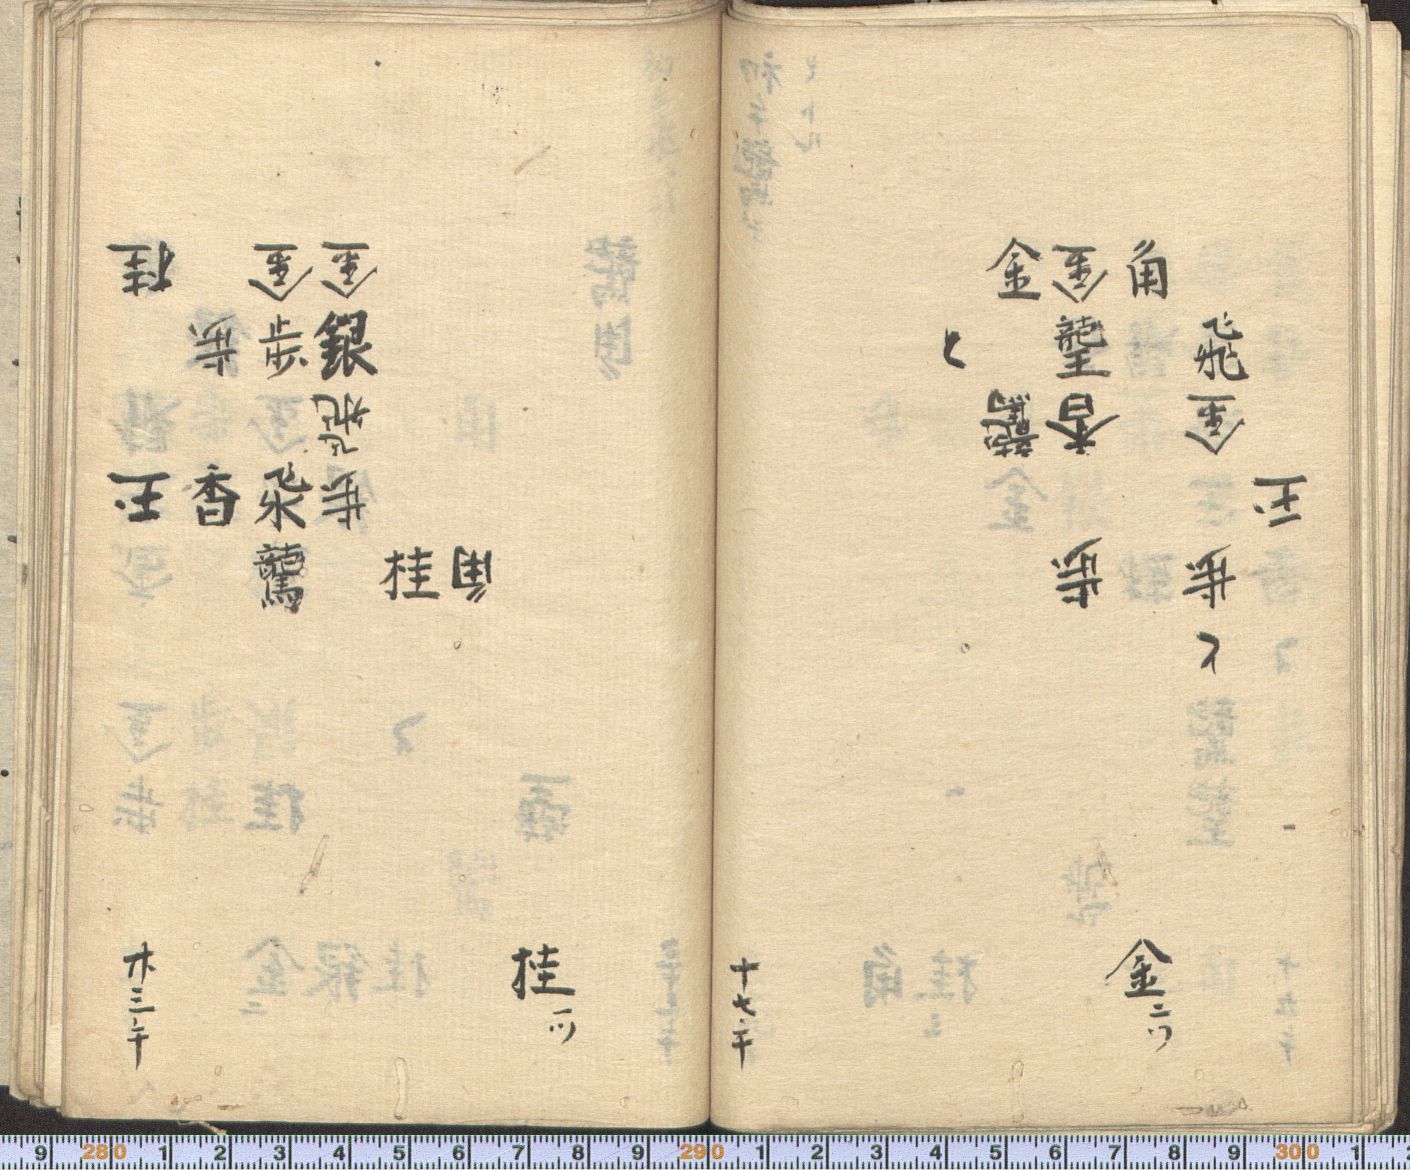 角 金 金
飛 龍王 と
金 香 龍馬
玉
歩 歩
と
金 二ツ
十七 手
金 金 桂
銀 歩 歩
飛
歩 飛 香 玉
角 桂 龍馬
桂 一ツ
三 手
280 1 2 3 4 5 6 7 8 9 290 1 2 3 4 5 6 7 8 9 300 1